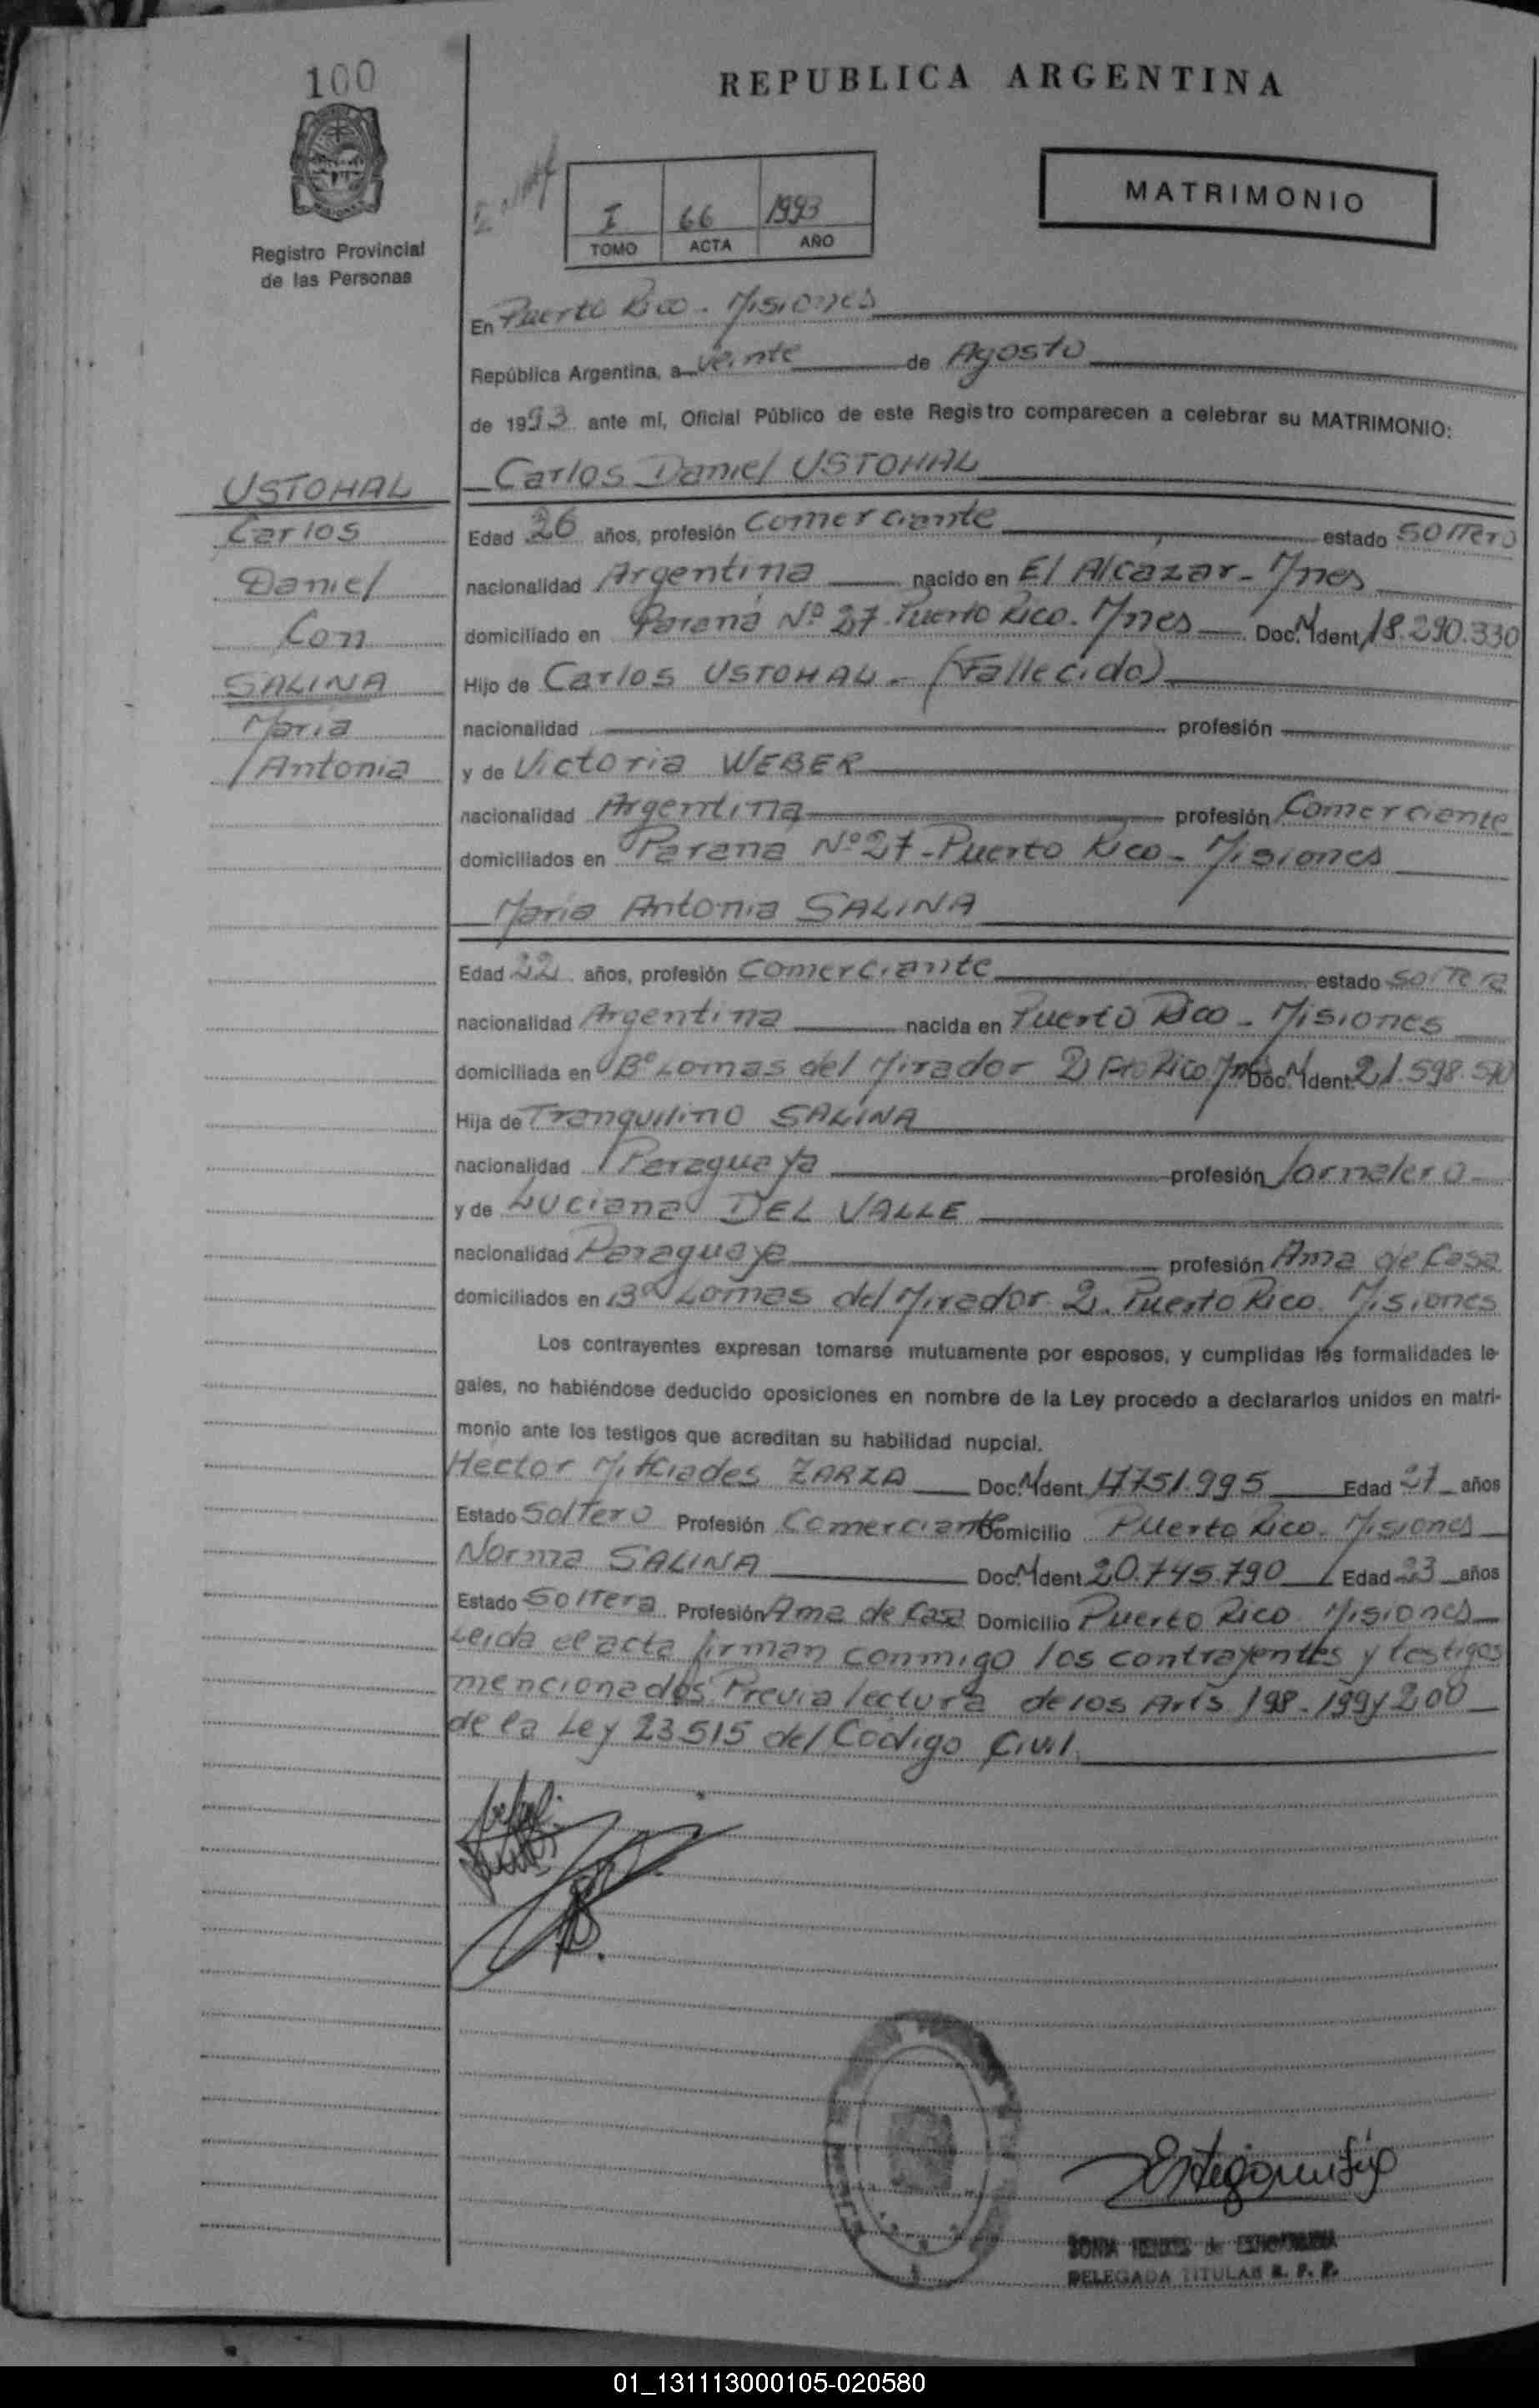 100
REPUBLICA ARGENTINA
Registro Provincial
de las Personas
I 66 1993
TOMO ACTA AÑO
MATRIMONIO
En Puerto Rico - Misiones
República Argentina, a veinte de Agosto
de 1993 ante mí, Oficial Público de este Registro comparecen a celebrar su MATRIMONIO:
USTOHAL
Carlos
Daniel
Con
SALINA
Maria
Antonia
Carlos Daniel USTOHAL
Edad 26 años, profesión Comerciante estado Soltero
nacionalidad Argentina nacido en El Alcázar - Mnes
domiciliado en Paraná Nº 27 - Puerto Rico - Mnes Doc. Ident. 18.290.330
Hijo de Carlos USTOHAL - (Fallecido)
nacionalidad profesión
y de Victoria WEBER
nacionalidad Argentina profesión Comerciante
domiciliados en Paraná Nº 27 - Puerto Rico - Misiones
Maria Antonia SALINA
Edad 22 años, profesión Comerciante estado Soltera
nacionalidad Argentina nacida en Puerto Rico - Misiones
domiciliada en Bº Lomas del Mirador 2 Pto Rico Mnes Doc. Ident. 21.598.510
Hija de Tranquilino SALINA
nacionalidad Paraguaya profesión Jornalero
y de Luciana DEL VALLE
nacionalidad Paraguaya profesión Ama de Casa
domiciliados en Bº Lomas del Mirador 2. Puerto Rico. Misiones
Los contrayentes expresan tomarse mutuamente por esposos, y cumplidas las formalidades le-
gales, no habiéndose deducido oposiciones en nombre de la Ley procedo a declararlos unidos en matri-
monio ante los testigos que acreditan su habilidad nupcial.
Hector Milciades ZARZA Doc. Ident. 17751.995 Edad 27 años
Estado Soltero Profesión Comerciante Domicilio Puerto Rico. Misiones
Norma SALINA Doc. Ident. 20.745.790 Edad 23 años
Estado Soltera Profesión Ama de Casa Domicilio Puerto Rico Misiones
Leida el acta firman conmigo los contrayentes y testigos
mencionados Previa lectura de los Arts 198 - 199 y 200
de la Ley 23515 del Codigo Civil.
DELEGADA TITULAR R. P. P.
01_131113000105-020580